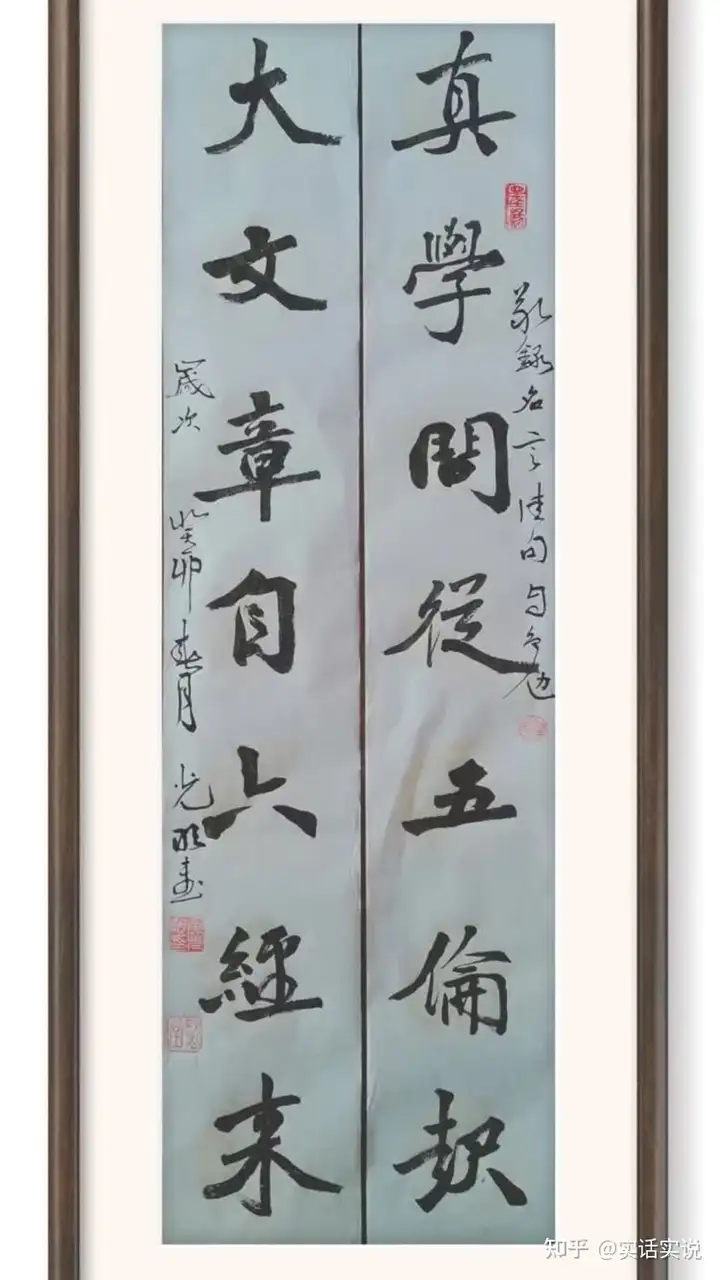 真學問從五倫起
敬録名言佳句与勉
大文章自六經来
歲次癸卯春月光明書
知乎 @实话实说